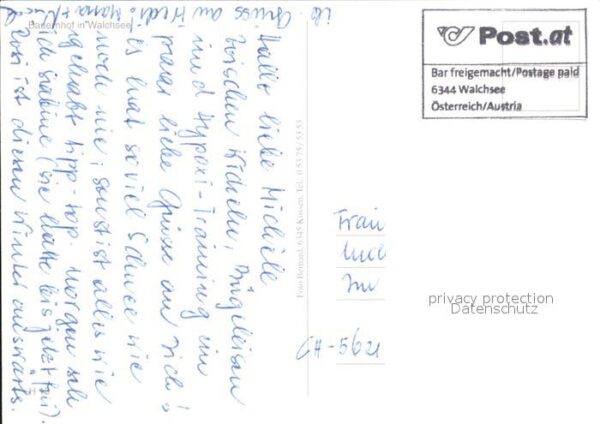 Bauernhof in Walchsee
Hallo liebe Michèle
zwischen Kicheln, Bügeleisen
und Hypoxi-Training ein
paar liebe Grüsse an Dich!
Es hat so viel Schnee wie
noch nie, sonst ist alles wie
gehabt tipp-top. Morgen seh
ich Sabine (sie hatte bis jetzt frei).
Rosi ist diesen Winter auswärts.
lb. Gruss an Hedi. Mama +
Foto Bernard, 6345 Kössen, Tel. 0 53 75 / 53 53
Post.at
Bar freigemacht/Postage paid
6344 Walchsee
Österreich/Austria
Frau
CH-5621
privacy protection
Datenschutz